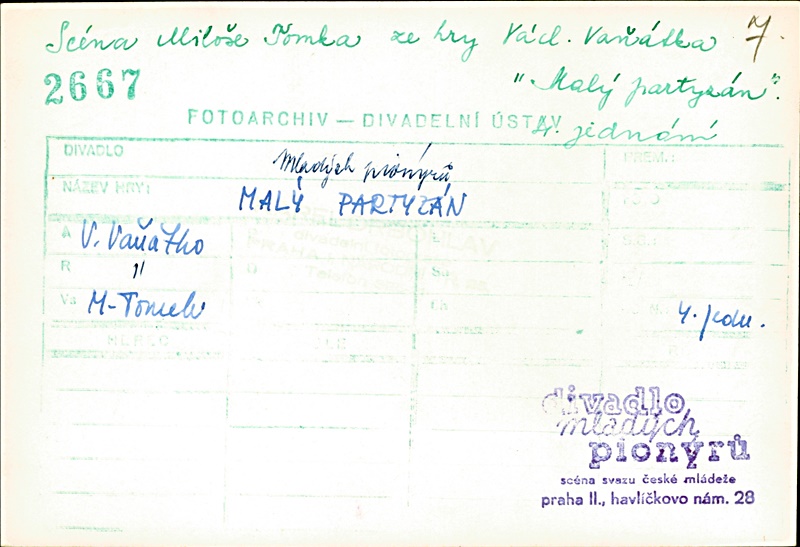 Scéna Miloše Tomka ze hry Václ. Vaňátka 7.
2667 "Malý partyzán".
FOTOARCHIV — DIVADELNÍ ÚSTAV 4. jednání
DIVADLO Mladých pionýrů PREM.:
NÁZEV HRY: MALÝ PARTYZÁN
A V. Vaňatko
R "
D
Vs M. Tomek 4. jedn.
divadlo
mladých
pionýrů
scéna svazu české mládeže
praha II., havlíčkovo nám. 28